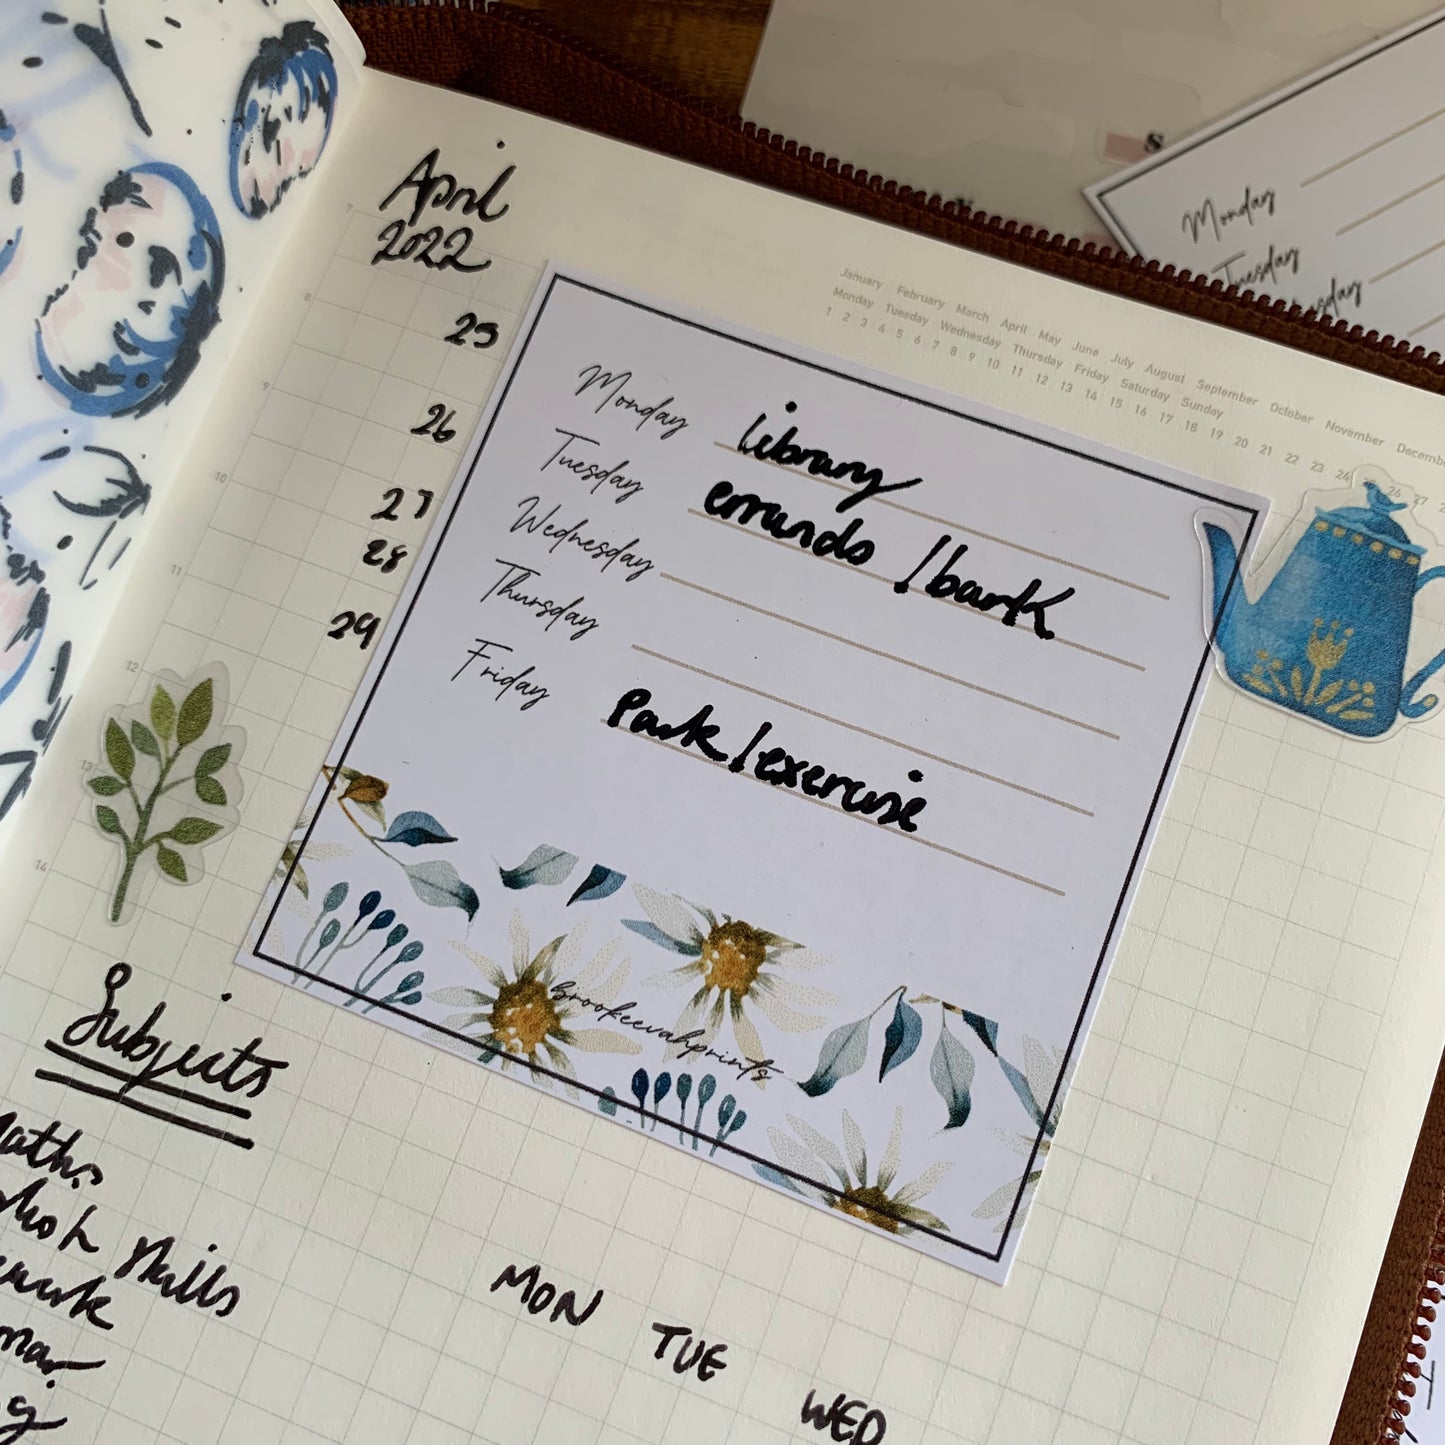 April
2022
January February March April May June July August September October November
Monday Tuesday Wednesday Thursday Friday Saturday Sunday
1 2 3 4 5 6 7 8 9 10 11 12 13 14 15 16 17 18 19 20 21 22 23 24
7
8
9
10
11
12
13
14
25
26
27
28
29
Monday library
Tuesday errands / bank
Wednesday
Thursday
Friday Park / exercise
Brookeevahprints
Subjects
Maths
skills
MON TUE WED
S
Monday
Tuesday